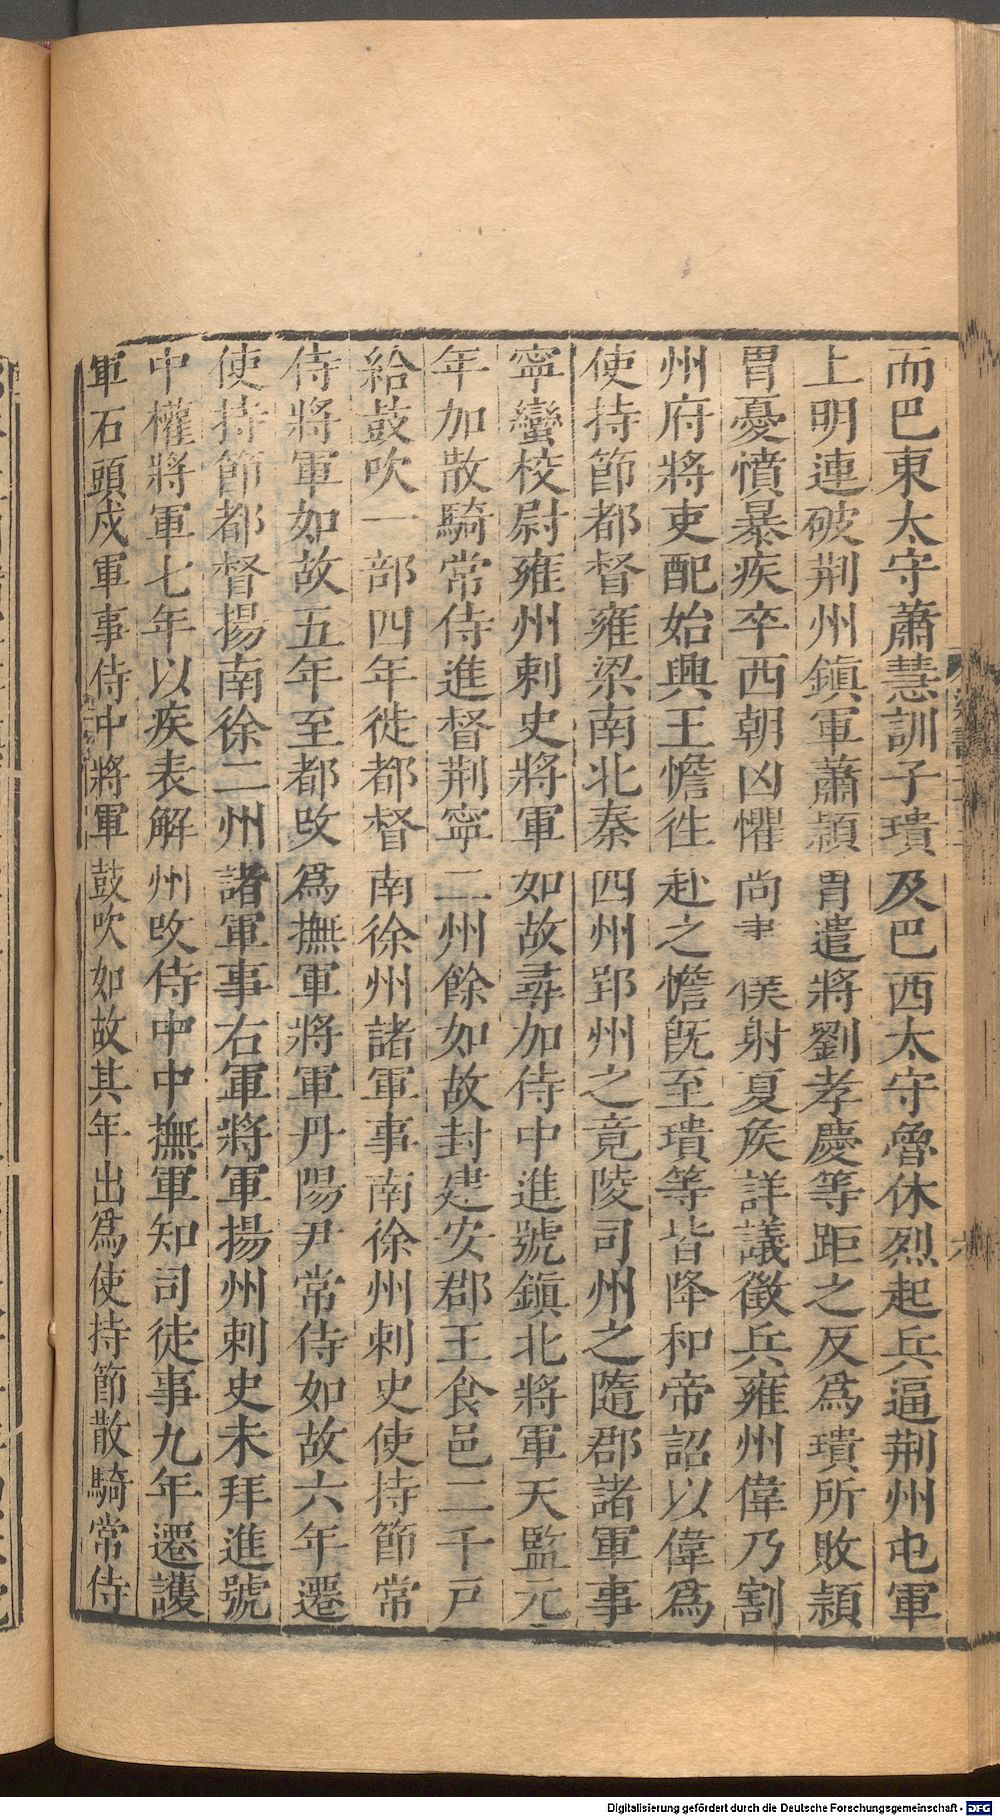 而巴東太守蕭慧訓子璝及巴西太守魯休烈起兵逼荆州屯軍
上明連破荆州鎮軍蕭頴胄遣將劉孝慶等距之反爲璝所敗頴
胄憂憤暴疾卒西朝凶懼尚書僕射夏矦詳議徵兵雍州偉乃割
州府將吏配始興王憺徃赴之憺旣至璝等皆降和帝詔以偉爲
使持節都督雍梁南北秦四州郢州之竟陵司州之隨郡諸軍事
寧蠻校尉雍州刺史將軍如故尋加侍中進號鎮北將軍天監元
年加散騎常侍進督荆寧二州餘如故封建安郡王食邑二千戸
給鼓吹一部四年徙都督南徐州諸軍事南徐州刺史使持節常
侍將軍如故五年至都攺爲撫軍將軍丹陽尹常侍如故六年遷
使持節都督揚南徐二州諸軍事右軍將軍揚州刺史未拜進號
中權將軍七年以疾表解州攺侍中中撫軍知司徒事九年遷護
軍石頭戍軍事侍中將軍鼓吹如故其年出爲使持節散騎常侍
六
Digitalisierung gefördert durch die Deutsche Forschungsgemeinschaft - DFG